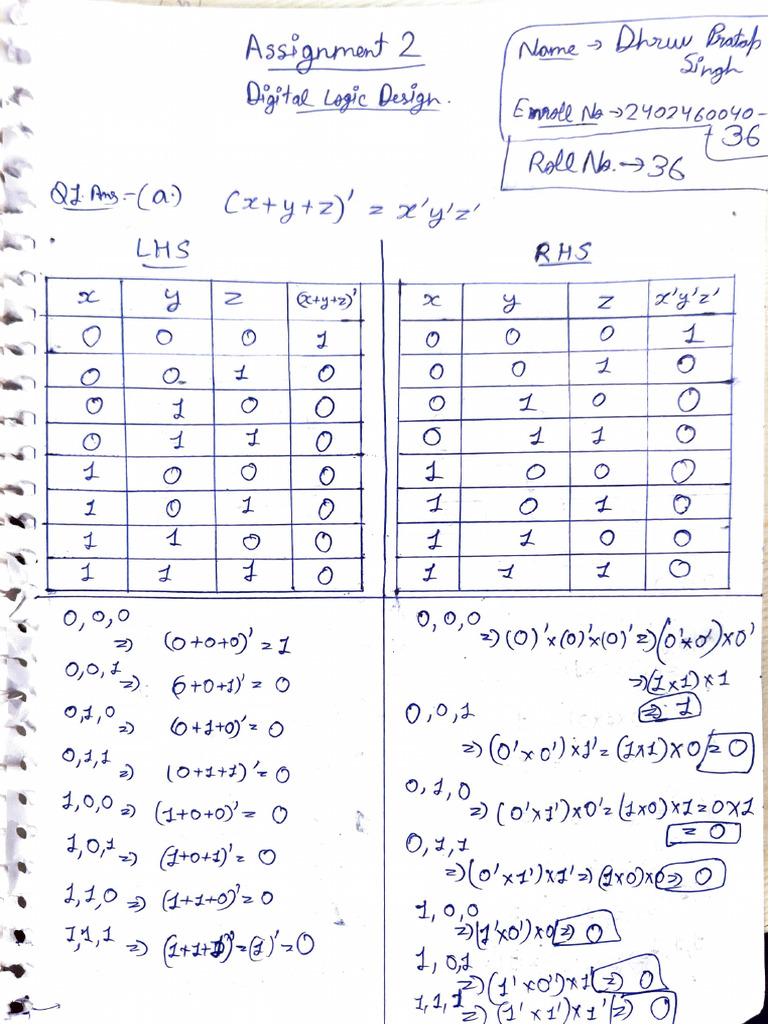 Assignment 2
Digital Logic Design.
Name → Dhruv Pratap
Singh
Enroll No → 2402460040-
36
Roll No. → 36
Q1. Ans.-(a.) (x+y+z)' = x'y'z'
LHS
x y z (x+y+z)'
0 0 0 1
0 0 1 0
0 1 0 0
0 1 1 0
1 0 0 0
1 0 1 0
1 1 0 0
1 1 1 0
RHS
x y z x'y'z'
0 0 0 1
0 0 1 0
0 1 0 0
0 1 1 0
1 0 0 0
1 0 1 0
1 1 0 0
1 1 1 0
0,0,0
⇒ (0+0+0)' = 1
0,0,1 ⇒ (0+0+1)' = 0
0,1,0 ⇒ (0+1+0)' = 0
0,1,1 ⇒ (0+1+1)' = 0
1,0,0 ⇒ (1+0+0)' = 0
1,0,1 ⇒ (1+0+1)' = 0
1,1,0 ⇒ (1+1+0)' = 0
1,1,1 ⇒ (1+1+1)' = (1)' = 0
0,0,0 ⇒ (0)'×(0)'×(0)' ⇒ (0'×0')×0'
⇒ (1×1)×1
⇒ 1
0,0,1
⇒ (0'×0')×1' = (1×1)×0 = 0
0,1,0
⇒ (0'×1')×0' = (1×0)×1 = 0×1
= 0
0,1,1
⇒ (0'×1')×1' ⇒ (1×0)×0 ⇒ 0
1,0,0
⇒ (1'×0')×0' ⇒ 0
1,0,1
⇒ (1'×0')×1' ⇒ 0
1,1,1 ⇒ (1'×1')×1' ⇒ 0